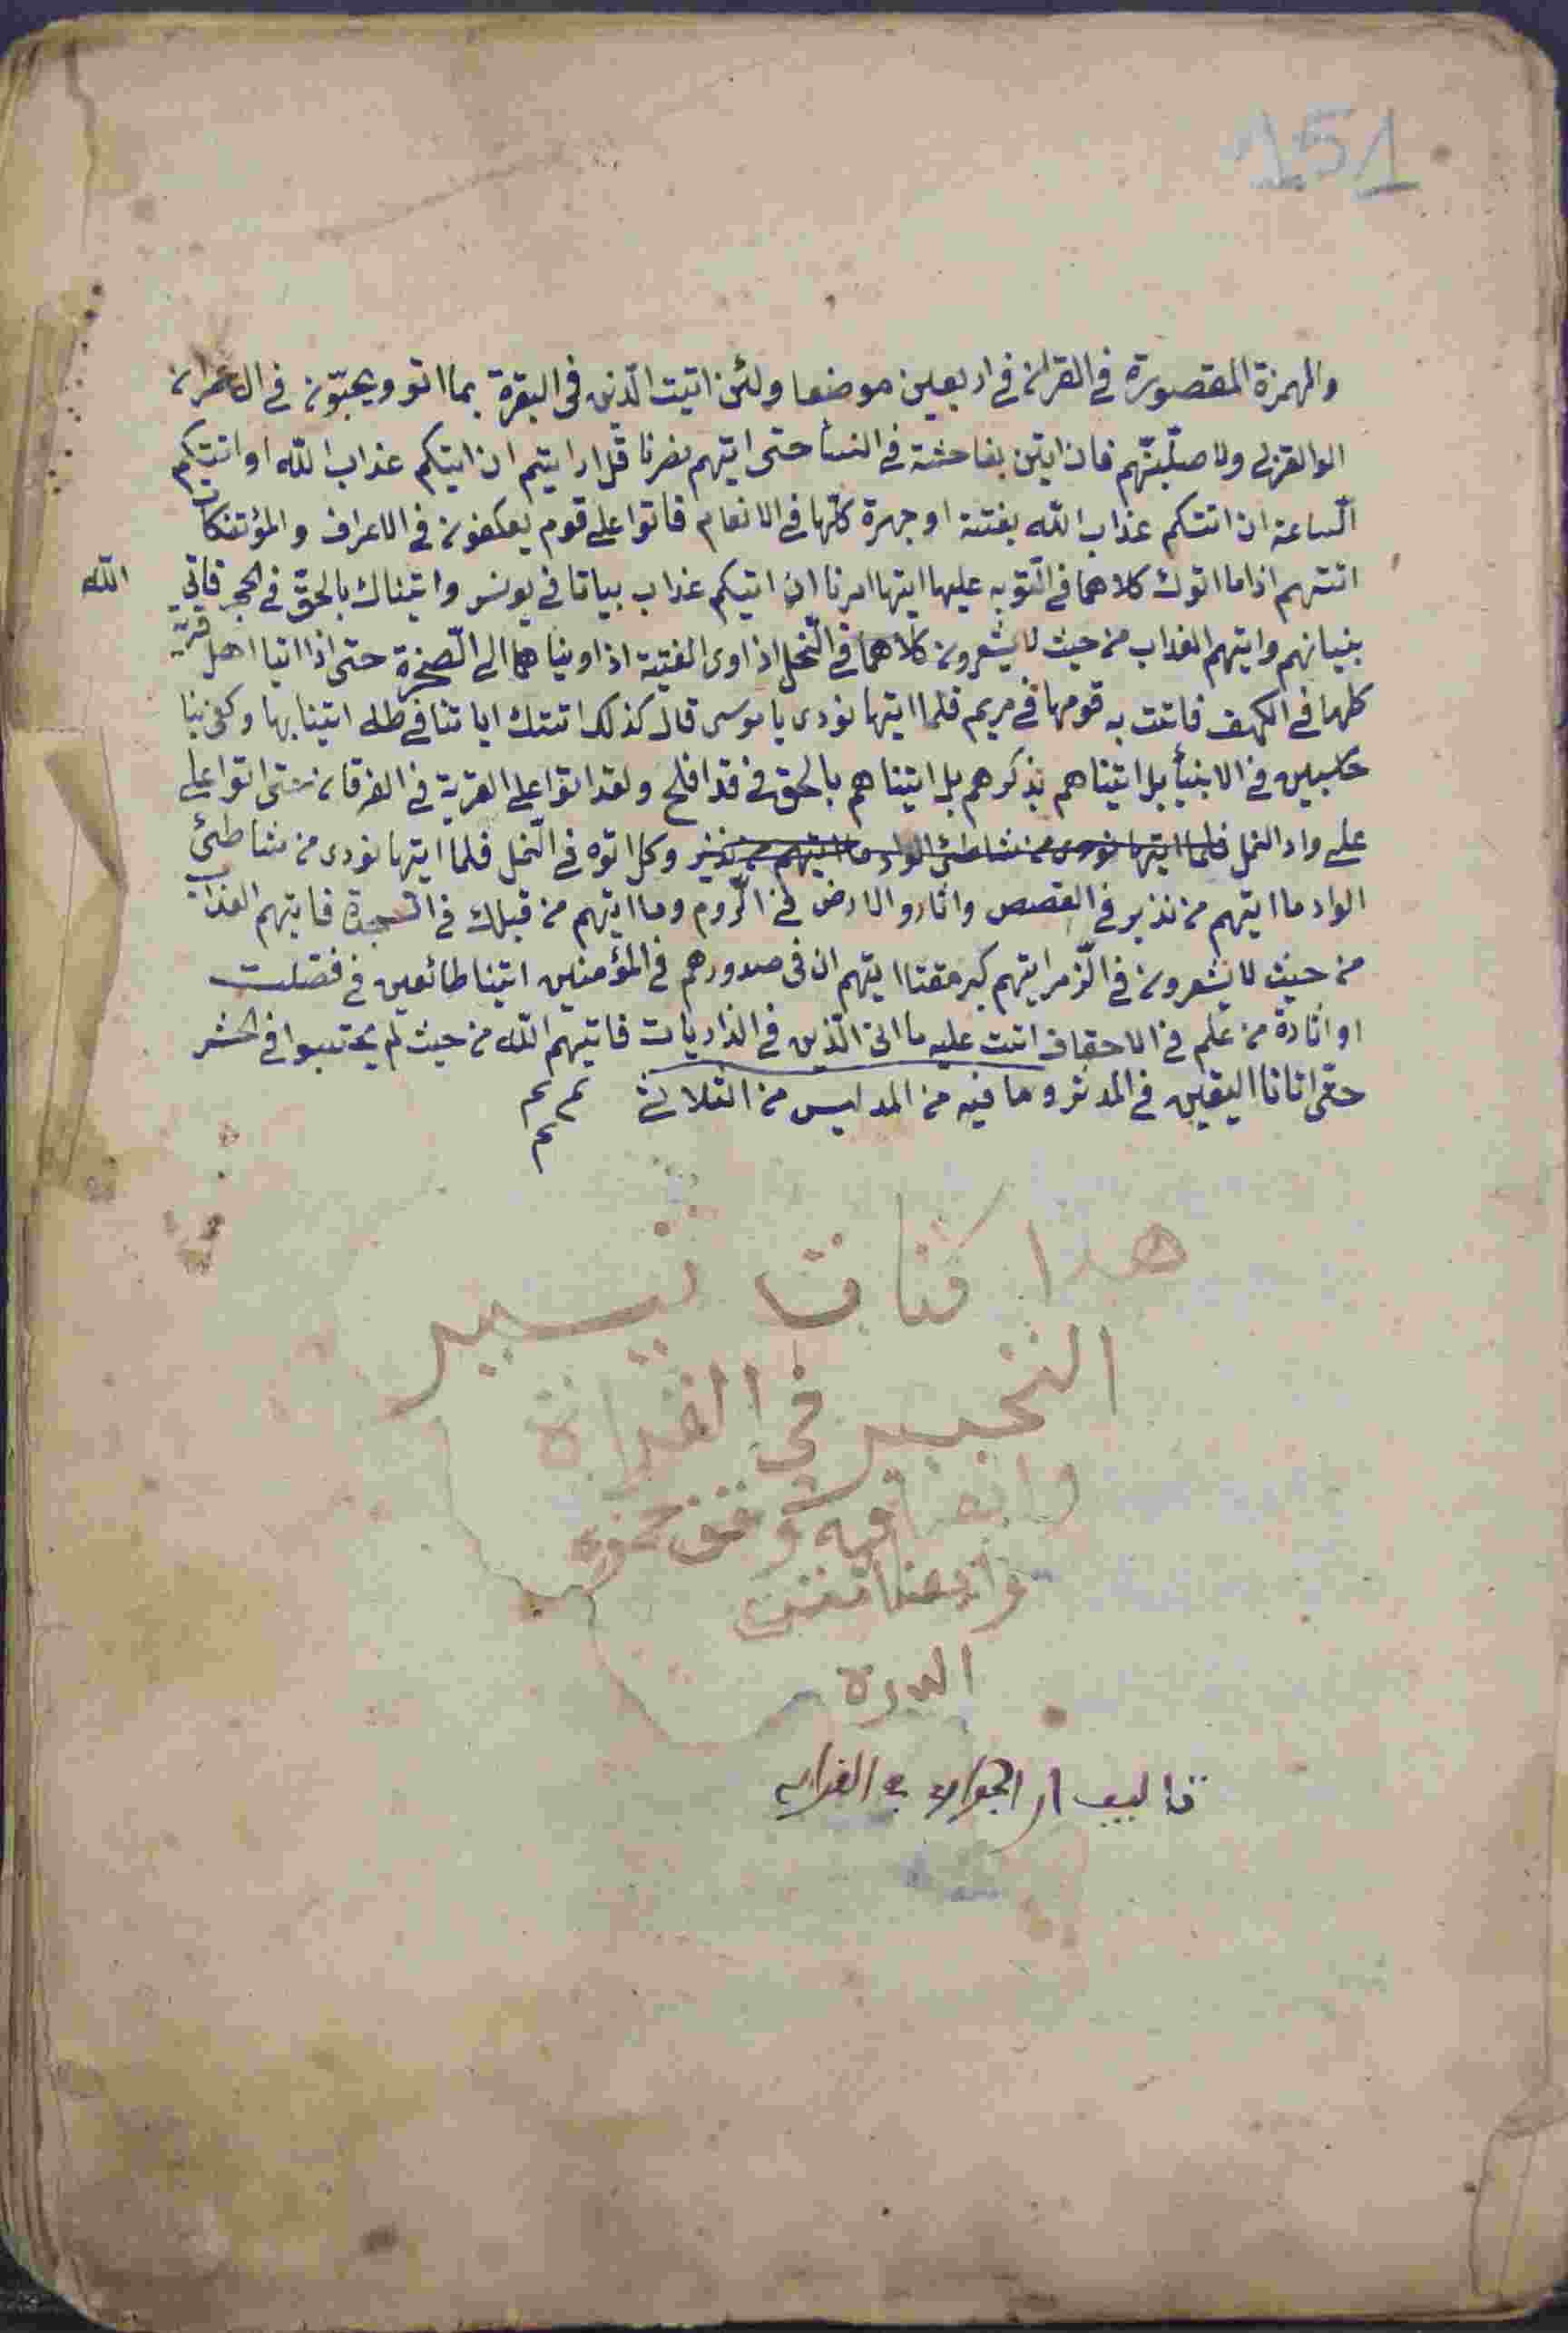 151
والهمزة المقصورة في القران في اربعين موضعا ولئن اتيت الّذين في البقرة بما اتو ويحبّون في ال عمران
الوالقربى ولاصلّبنّهم فان اتين بفاحشة في النسأ حتى ايتهم نصرنا قل ارايتم ان ايتكم عذاب الله او اتتكم
السّاعة ان اتتكم عذاب الله بغتة او جهرة كلّها في الانعام فاتوا على قوم يعكفون في الاعراف والمؤتفكات
اتتهم اذاما اتوك كلاهما في التّوبه عليها ايتها امرنا ان ايتكم عذاب بياتا في يونس واتيناك بالحقّ في الحجر فاتى
الله
بنيانهم وايتهم العذاب من حيث لا يشعرون كلاهما في النّحل اذ اوى الفتية اذ اوينا هما الى الصّخرة حتى اذا اتيا اهل قرية
كلها في الكهف فاتت به قومها في مريم فلما ايتها نودى يا موسى قال كذلك اتتك اياتنا في طه اتينا بها وكفى بنا
حاسبين في الانبيأ بل ايتناهم بذكرهم بل ايتناهم بالحق في قد افلح ولقد اتوا على القرية في الفرقان حتى اتوا على
على واد النمل فلما ايتها نودى من شاطئ الواد ما ايتهم من نذير وكل اتوه في النّمل فلما ايتها نودى من شاطئ
الواد ما ايتهم من نذير في القصص واثارو الارض في الرّوم وما ايتهم من قبلك في السّجدة فايتهم العذاب
من حيث لا يشعرون في الزّمر ايتهم كبر مقتا ايتهم ان في صدورهم في المؤمنين اتينا طائعين في فصّلت
او اثارة من علم في الاحقاف اتت عليه ما اتى الّذين في الذاريات فاتيهم الله من حيث لم يحتسبوا في الحشر
حتّى اتانا اليقين في المدثر وما فيه من المد ليس من الثلاثة تم تم
هذا كتاب تيسير
التحبير في القراة
وايضا فيه وقف حمزه
وايضا متن
الدره